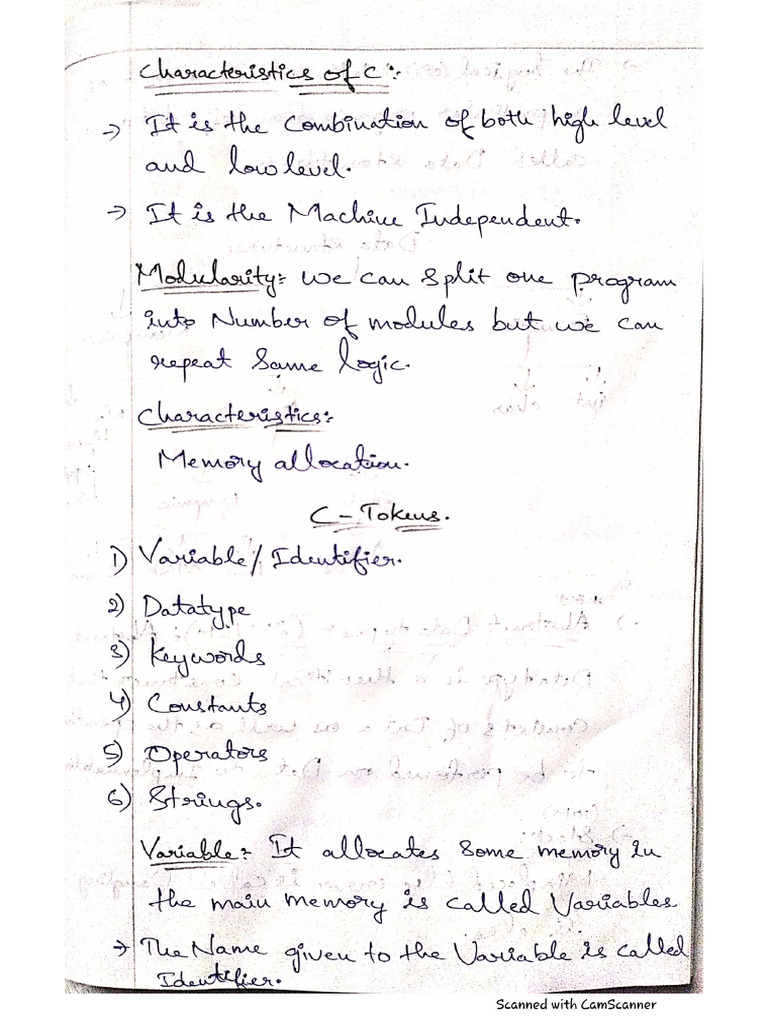 Characteristics of C:-
→ It is the Combination of both high level
and low level.
→ It is the Machine Independent.
Modularity:- we can split one program
into Number of modules but we can
repeat same logic.
Characteristics:-
Memory allocation.
C-Tokens.
1) Variable/Identifier.
2) Datatype
3) Keywords
4) Constants
5) Operators
6) Strings.
Variable:- It allocates some memory in
the main memory is called Variables
→ The Name given to the Variable is called
Identifier.
Scanned with CamScanner